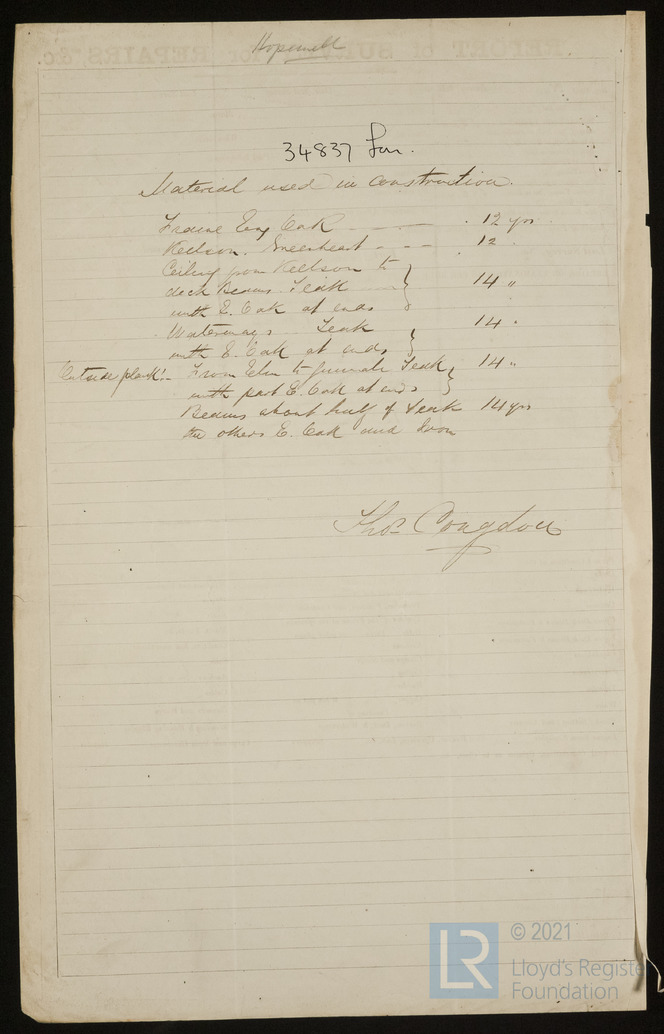 Hopewell
34837 Lon.
Material used in construction.
Frame Eng Oak . 12 yrs
Keelson. Greenheart 12 "
Ceiling from Keelson to
deck Beams. Teak 14 "
with E. Oak at ends
Waterways Teak 14 "
with E. Oak at ends
Outside plank:- From Elm to Gunwale Teak 14 "
with part E. Oak at ends
Beams about half of Teak 14 yrs
the others E. Oak and Iron
Thos Congdon
REPORT of SURVEY for REPAIRS, &c.
LR
© 2021
Lloyd's Register
Foundation